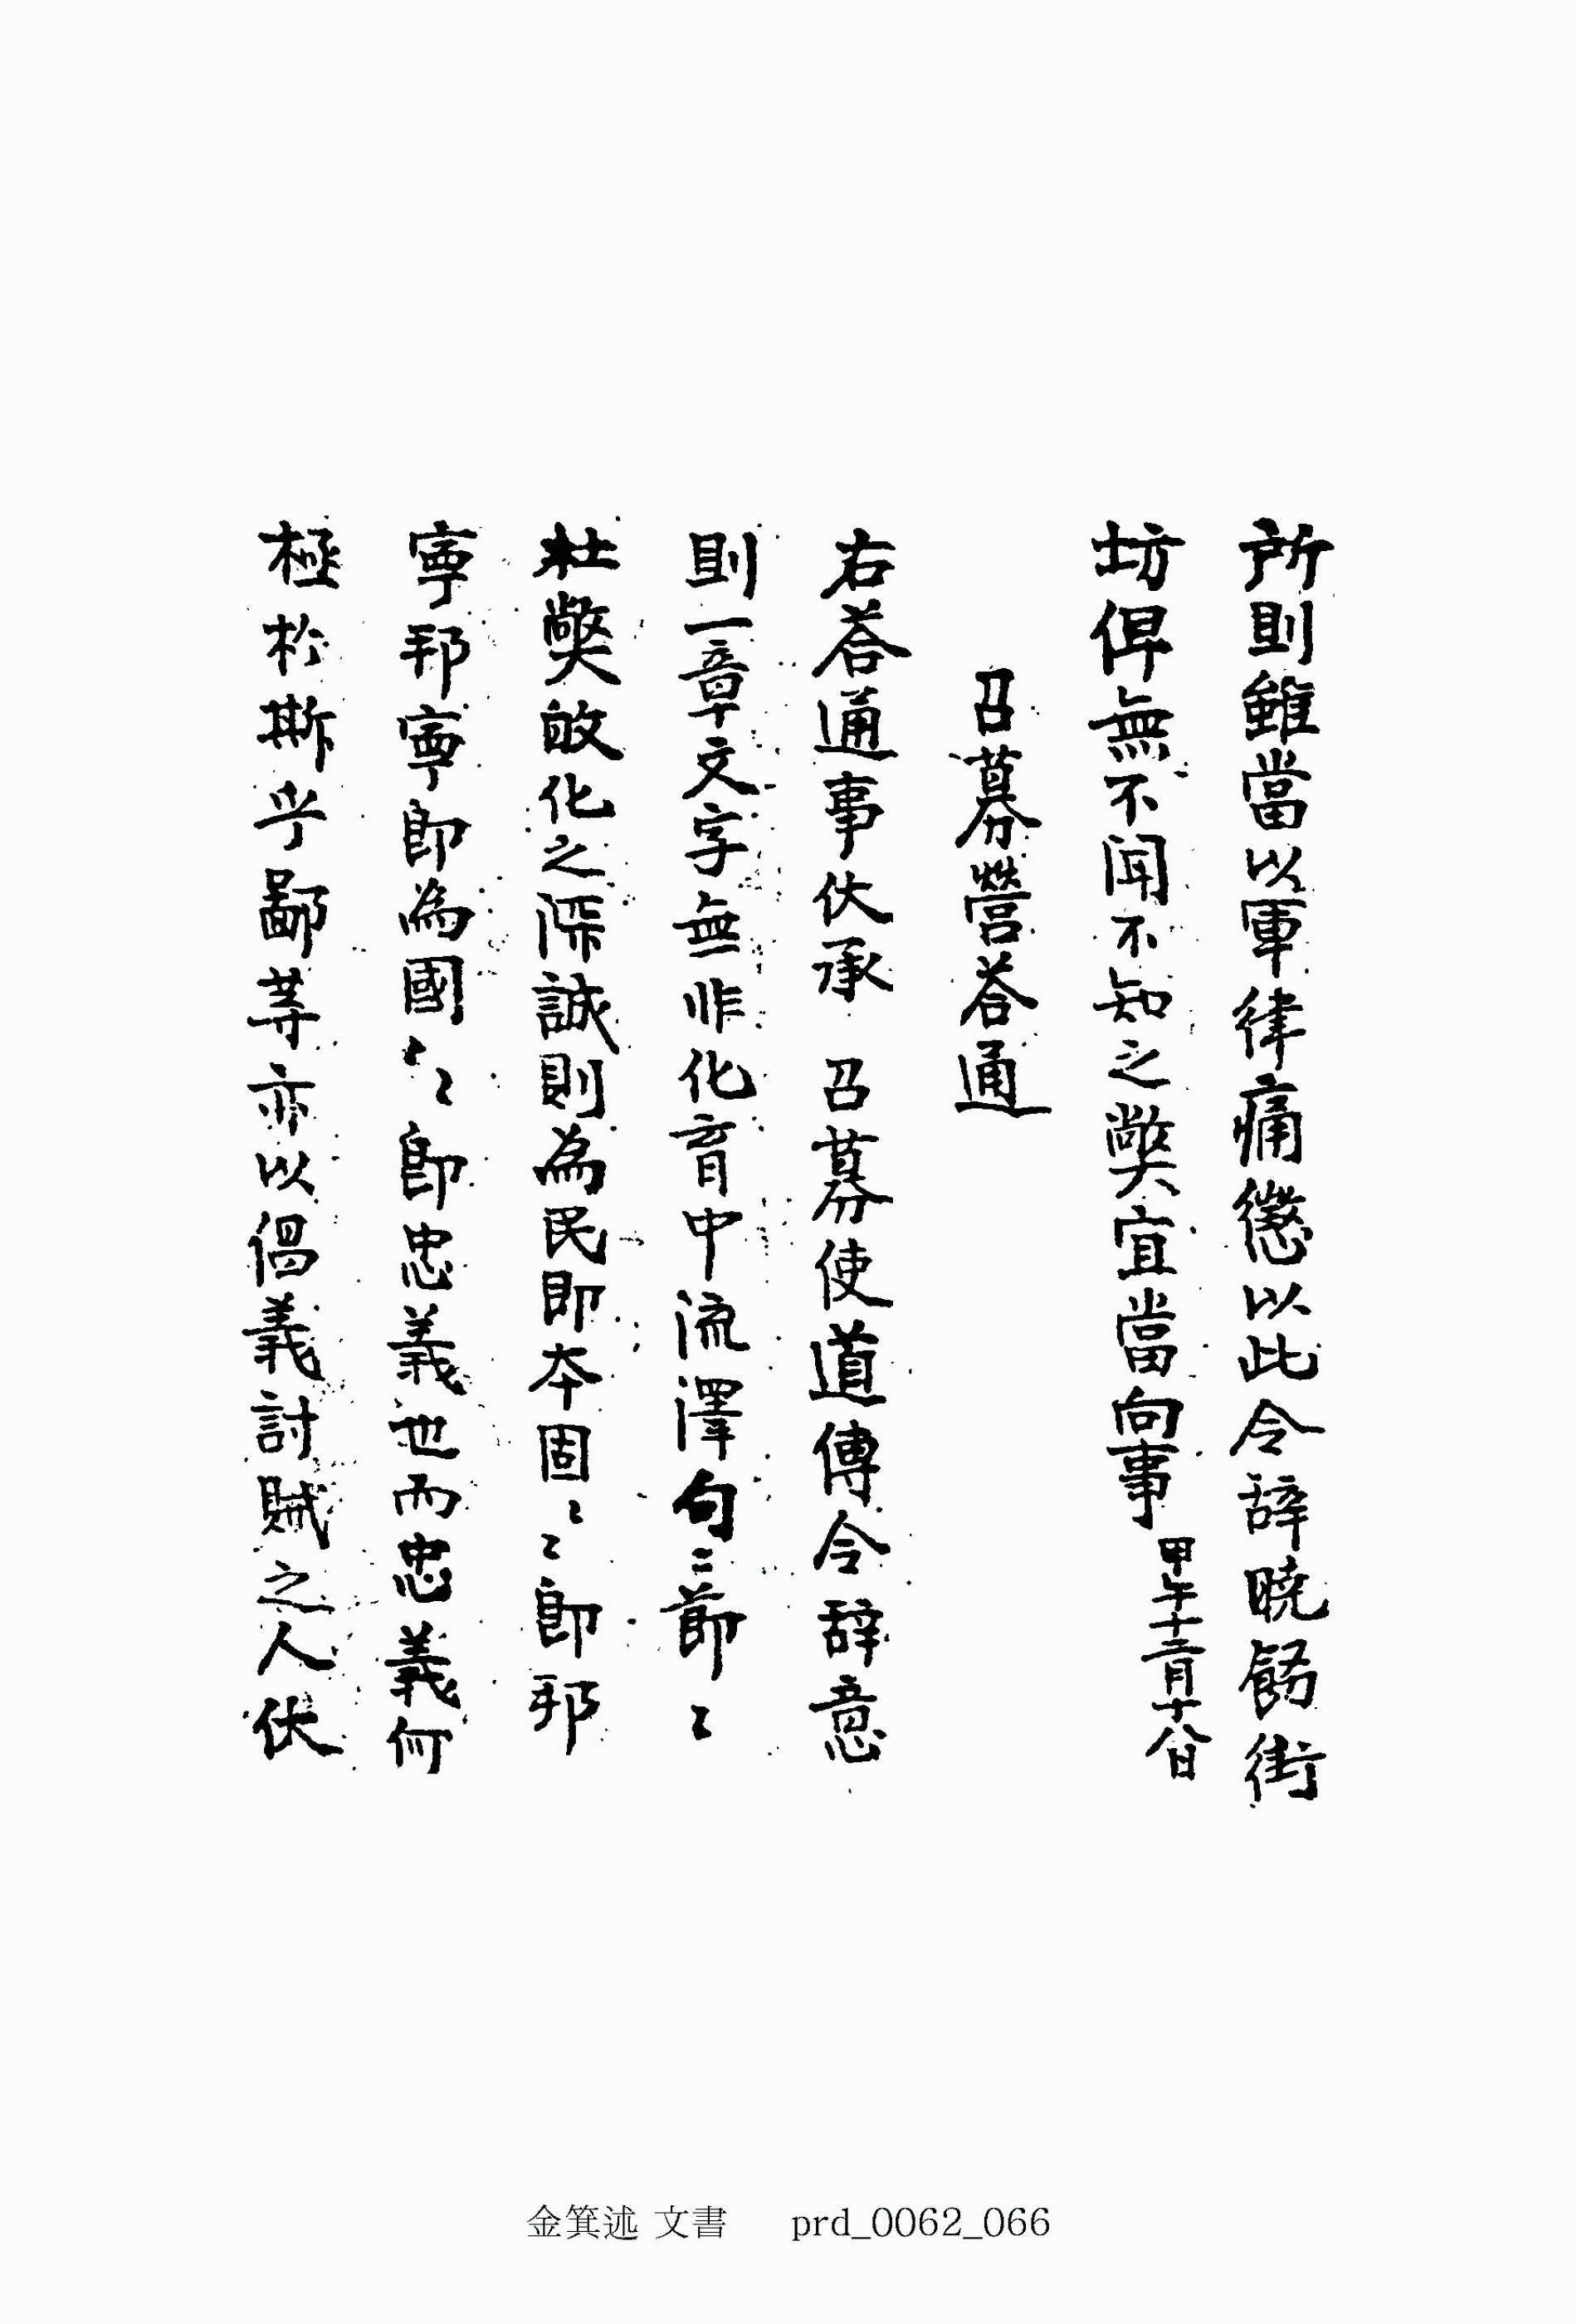 所則雖當以軍律痛懲以此令辞曉飭街
坊俾無不聞不知之獘宜當向事 甲午十二月十八日
召募營荅通
右荅通事伏承 召募使道傳令辞意
則一章文字無非化育中流澤句〻節〻
杜獘敀化之深誠則為民即本固〻〻即邦
寧邦寧即為國〻〻即忠義也而忠義何
極於斯乎鄙等亦以倡義討賊之人伏
金箕述 文書 prd_0062_066